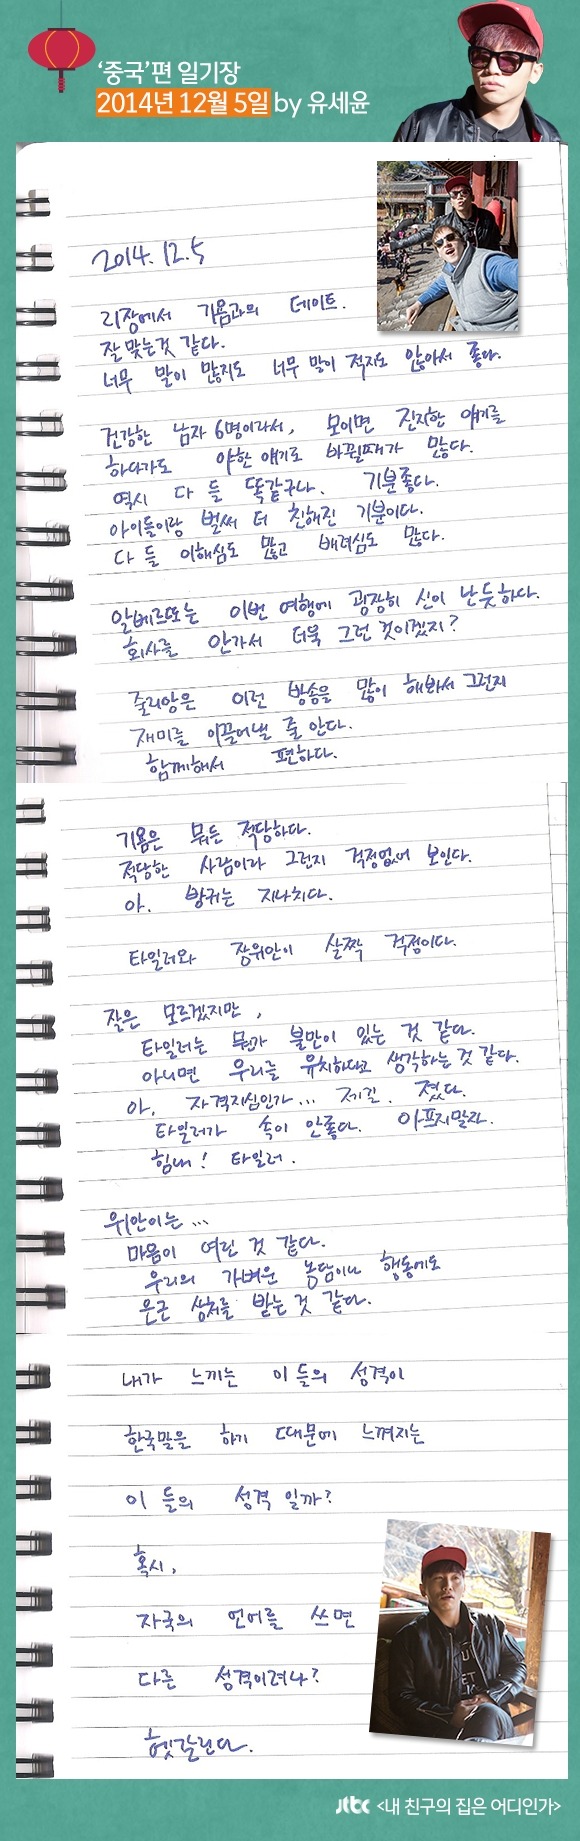 ‘중국’편 일기장
2014년 12월 5일 by 유세윤
2014. 12. 5
리장에서 기욤과의 데이트.
잘 맞는것 같다.
너무 말이 많지도 너무 말이 적지도 않아서 좋다.
건강한 남자 6명이라서, 모이면 진지한 얘기를
하다가도 야한 얘기로 바뀔때가 많다.
역시 다 들 똑같구나. 기분좋다.
아이들이랑 벌써 더 친해진 기분이다.
다 들 이해심도 많고 배려심도 많다.
알베르또는 이번 여행에 굉장히 신이 난 듯하다.
회사를 안가서 더욱 그런 것이겠지?
줄리앙은 이런 방송을 많이 해봐서 그런지
재미를 이끌어낼 줄 안다.
함께해서 편하다.
기욤은 뭐든 적당하다.
적당한 사람이라 그런지 걱정없어 보인다.
아. 방귀는 지나치다.
타일러와 장위안이 살짝 걱정이다.
잘은 모르겠지만,
타일러는 뭔가 불만이 있는 것 같다.
아니면 우리를 유치하다고 생각하는 것 같다.
아. 자격지심인가... 제길. 졌다.
타일러가 속이 안좋다. 아프지말라.
힘내! 타일러.
위안이는...
마음이 여린 것 같다.
우리의 가벼운 농담이나 행동에도
은근 상처를 받는 것 같다.
내가 느끼는 이 들의 성격이
한국말을 하기 때문에 느껴지는
이 들의 성격 일까?
혹시,
자국의 언어를 쓰면
다른 성격이려나?
헷갈린다.
jtbc <내 친구의 집은 어디인가>